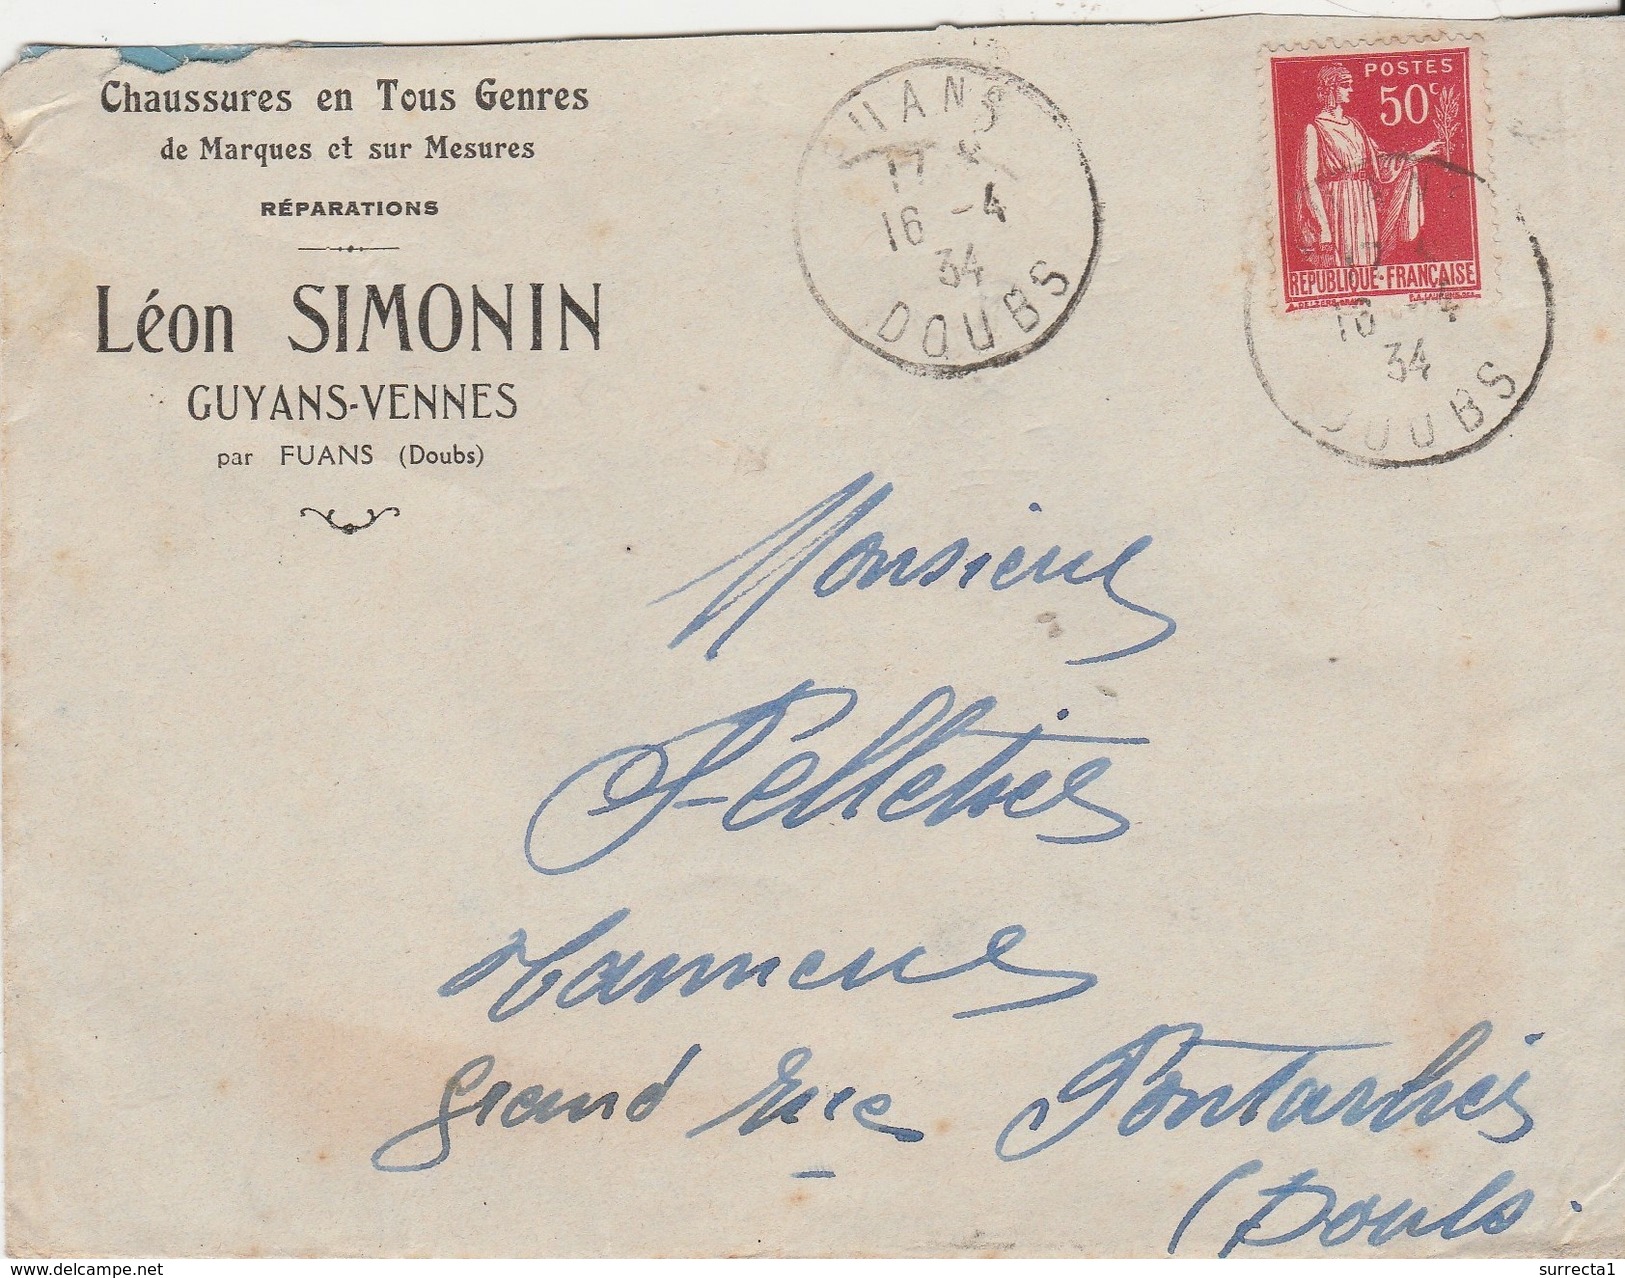 Chaussures en Tous Genres
de Marques et sur Mesures
RÉPARATIONS
Léon SIMONIN
GUYANS-VENNES
par FUANS (Doubs)
FUANS
17
16 -4
34
DOUBS
POSTES
50c
REPUBLIQUE-FRANÇAISE
16 -4
34
DOUBS
Monsieur
Pelletier
Tanneur
Grand Rue Pontarlier
(Doubs.
delcampe.net
surrecta1